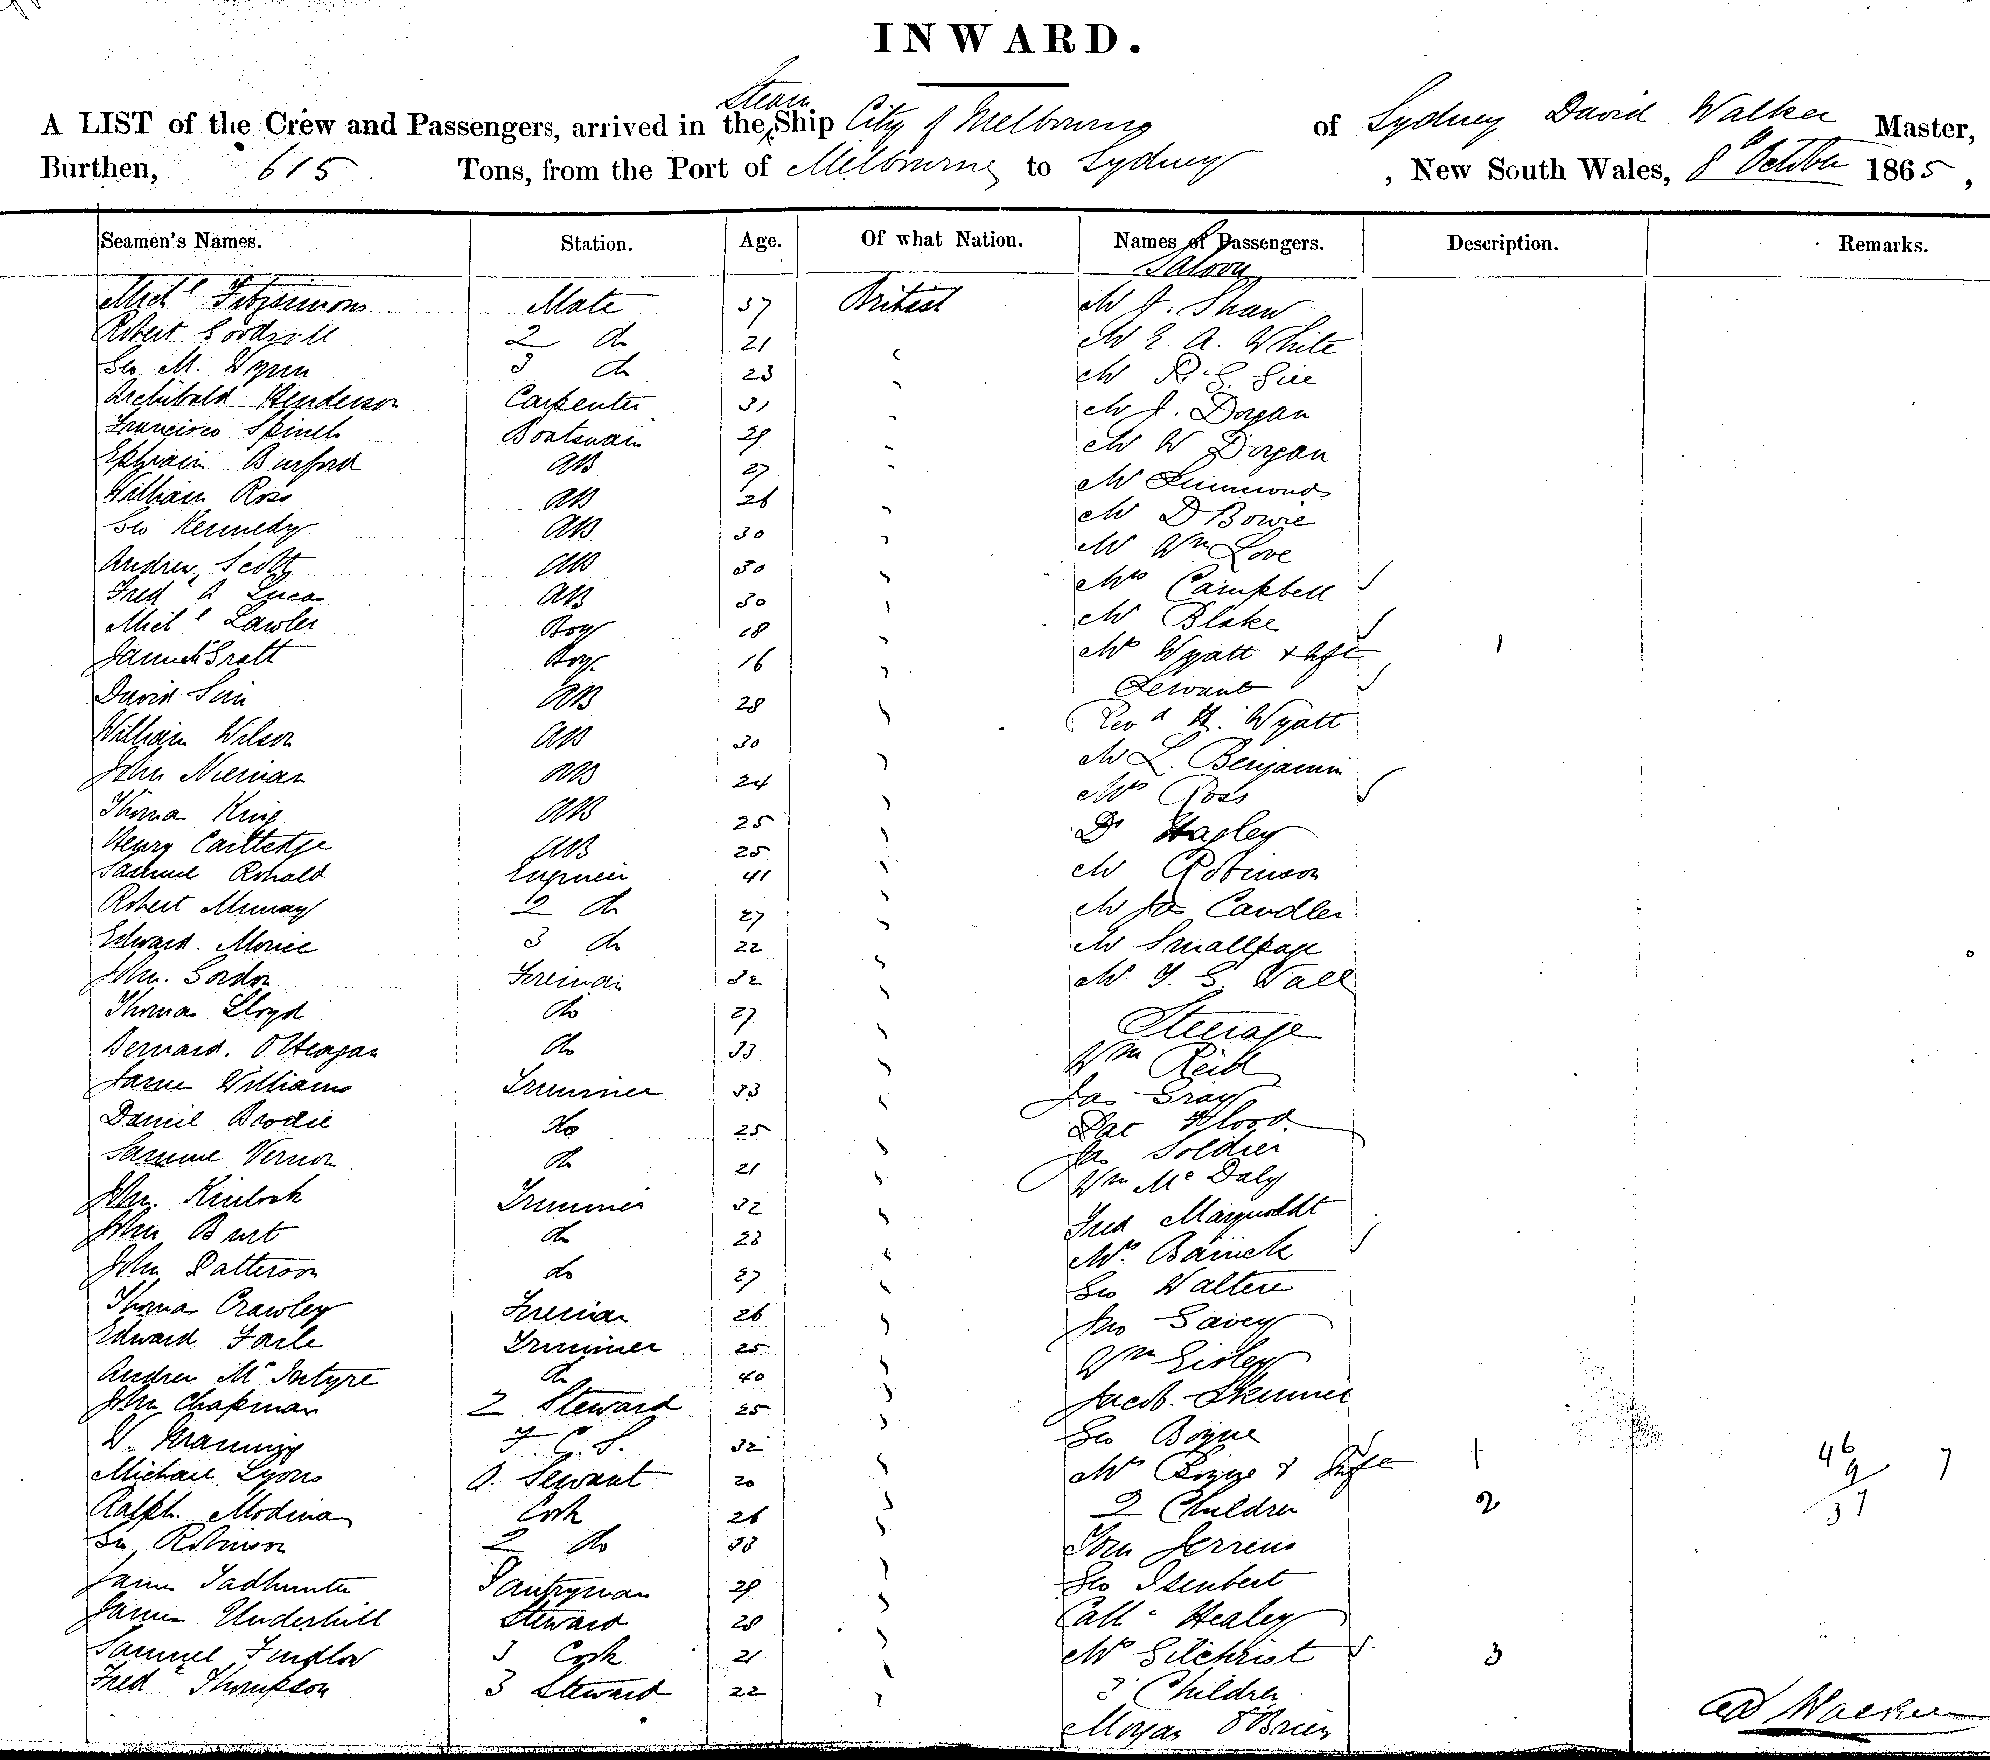 INWARD.
A LIST of the Crew and Passengers, arrived in the Steam Ship City of Melbourne of Sydney David Walker Master,
Burthen, 615 Tons, from the Port of Melbourne to Sydney, New South Wales, 8th October 1865,
Seamen's Names. Station. Age. Of what Nation. Names of Passengers. Description. Remarks.
Saloon
Michl Fitzsimons Mate 37 British Mr J. Shaw
Robert 2 do 21 Mr E. A. White
Geo M. Wynn 3 do 23 Mr R. G.
Archibald Henderson Carpenter 31 Mr J. Dogan
Francisco Boatswain 29 Mr W Dogan
Ephraim Burford AB 27 Mr Simmonds
William Ross AB 26 Mr D Bowie
Geo Kennedy AB 30 Mr Wm Love
Andrew Scott AB 30 Mrs Campbell
Fred A Lucas AB 30 Mr Blake
Michl Lawler Boy 18 Mr Wyatt & wife 1
Boy 16 Servant
David Sim AB 28 Revd H. Wyatt
William Wilson AB 30 Mr L. Benjamin
John AB 24 Mrs Ross
Thomas King AB 25 Dr
Henry Cartledge AB 25 Mr Robinson
Samuel Ronald Engineer 41 Mr Jas Candler
Robert Murray 2 do 27 Mr Smallpage
Edward 3 do 22 Mr T. S. Vall
John Gordon Fireman 32
Thomas Lloyd do 27 Steerage
Bernard O'Heagan do 33 Wm Reid
James Williams Trimmer 33 Jas Gray
Daniel Brodie do 25 Flood
Samuel Vernon do 21 Jas Soldier
John Kinlock Trimmer 32 Wm Mc Daly
John Burt do 23 Fred
John Patterson do 27 Mrs
Thomas Crawley Fireman 26 Geo Walters
Edward Trimmer 25 Jno Savey
Andrew McIntyre do 40 Wm
John Chapman 2 Steward 25 Jacob Skinner
W. Manning F. C. S. 32 Geo Bogue
Michael Lyons O. Servant 20 Mr & Wife 1 46 7
Ralph Modina Cook 26 2 Children 2 9
Geo Robinson 2 do 33 Tom Jerrens 37
James Tadhunter Pantryman 29 Geo Isenbert
James Underhill Steward 28 Cath Healey
Samuel Findlow 3 Cook 21 Mrs Gilchrist 3
Fred Thompson 3 Steward 22 3 Children
Morgan O'Brien
D Walker